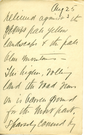 Aug 25
relieved against the
pale yellow
landscape & the pale
blue mountain —
The higher rolling
land the road runs
on is barren ground
for the most part